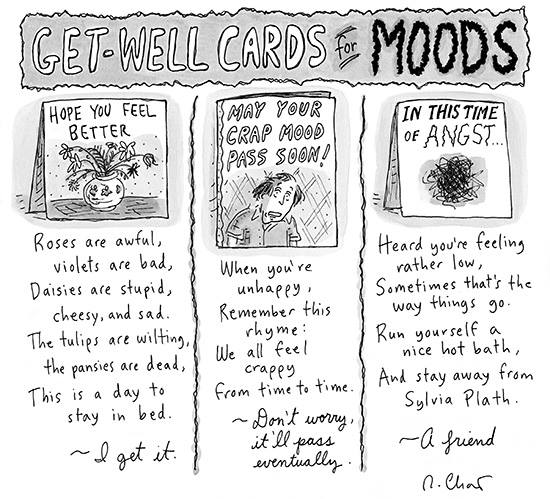 GET-WELL CARDS for MOODS
HOPE YOU FEEL
BETTER
Roses are awful,
violets are bad,
Daisies are stupid,
cheesy, and sad.
The tulips are wilting,
the pansies are dead,
This is a day to
stay in bed.
~ I get it.
MAY YOUR
CRAP MOOD
PASS SOON!
When you're
unhappy,
Remember this
rhyme:
We all feel
crappy
From time to time.
~ Don't worry,
it'll pass
eventually.
IN THIS TIME
OF ANGST...
Heard you're feeling
rather low,
Sometimes that's the
way things go.
Run yourself a
nice hot bath,
And stay away from
Sylvia Plath.
~A friend
R. Chast